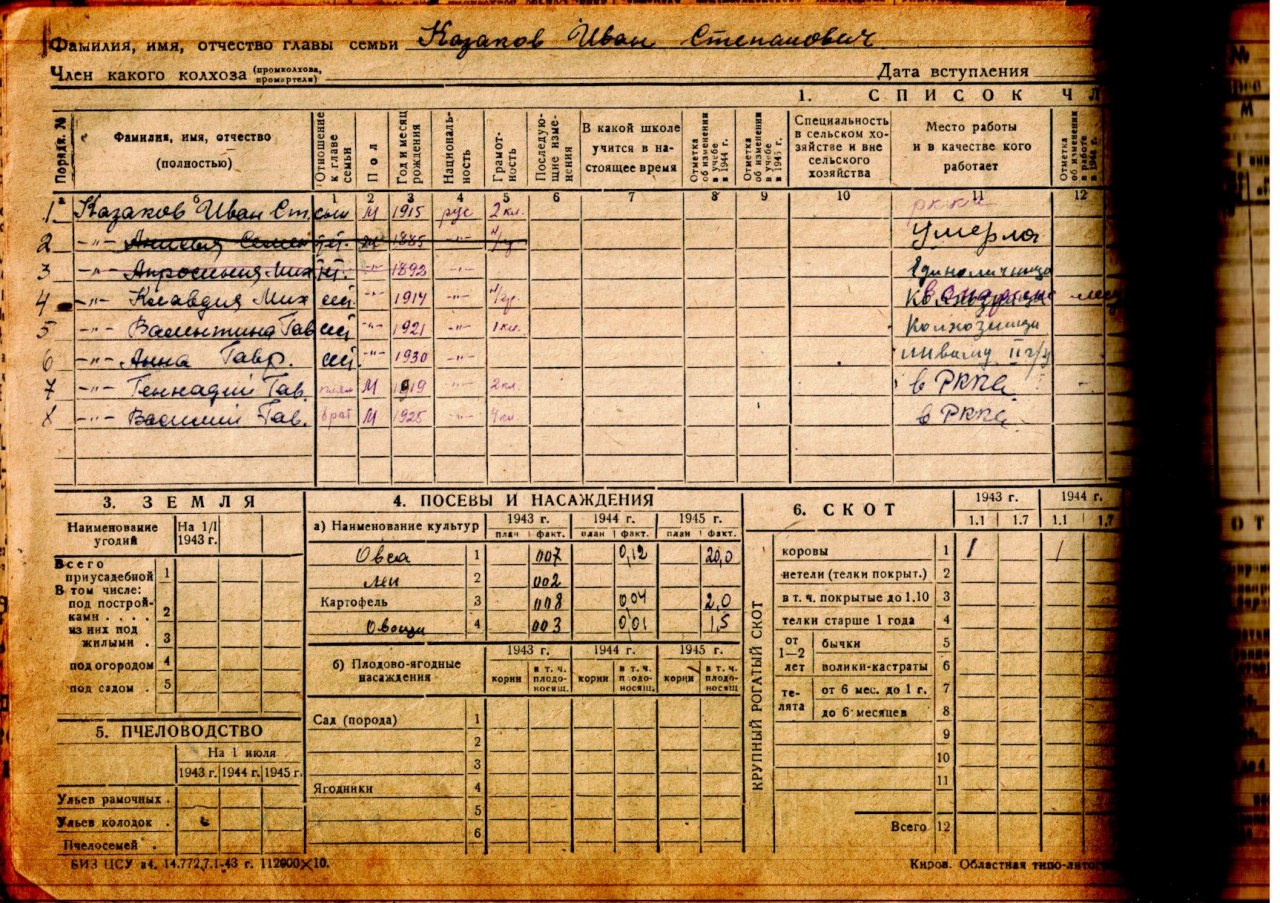 Фамилия, имя, отчество главы семьи Казаков Иван Степанович
Член какого колхоза (промколхоза, промартели) Дата вступления
1. СПИСОК ЧЛ
Порядк. №
Фамилия, имя, отчество (полностью)
Отношение к главе семьи
Пол
Год и месяц рождения
Национальность
Грамотность
Последующие изменения
В какой школе учится в настоящее время
Отметка об изменении в учебе в 1944 г.
Отметка об изменении в учебе в 1945 г.
Специальность в сельском хозяйстве и вне сельского хозяйства
Место работы и в качестве кого работает
Отметка об изменении в работе
1 2 3 4 5 6 7 8 9 10 11 12
1 Казаков Иван Ст. М 1915 рус 2 кл. ркка
2 -"- 1885 -"- Умерла
3 -"- Мих -"- 1892 -"- Единоличница
4 -"- Клавдия Мих -"- 1914 -"-
5 -"- Валентина Гав -"- 1921 -"- 1 кл. Колхозница
6 -"- Анна Гавр. -"- 1930 -"-
7 -"- Геннадий Гав. М 1919 -"- 2 кл. в РККА
8 -"- Василий Гав. брат М 1925 -"- 4 кл. в РККА
3. ЗЕМЛЯ
Наименование угодий На 1/I 1943 г.
Всего приусадебной 1
В том числе: под постройками . . . . 2
из них под жилыми . 3
под огородом 4
под садом . 5
5. ПЧЕЛОВОДСТВО
На 1 июля
1943 г. 1944 г. 1945 г.
Ульев рамочных .
Ульев колодок .
Пчелосемей .
4. ПОСЕВЫ И НАСАЖДЕНИЯ
а) Наименование культур 1943 г. 1944 г. 1945 г.
план факт. план факт. план факт.
Овса 1 007 0,12 20,0
Лен 2 002
Картофель 3 008 0,04 2,0
Овощи 4 003 0,01 1,5
б) Плодово-ягодные насаждения 1943 г. 1944 г. 1945 г.
корни в т. ч. плодоносящ. корни в т. ч. плодоносящ. корни в т. ч. плодоносящ
Сад (порода) 1
2
3
Ягодники 4
5
6
6. СКОТ 1943 г. 1944 г.
1.1 1.7 1.1 1.7
КРУПНЫЙ РОГАТЫЙ СКОТ
коровы 1 1 1
нетели (телки покрыт.) 2
в т. ч. покрытые до 1.10 3
телки старше 1 года 4
от 1—2 лет бычки 5
волики-кастраты 6
телята от 6 мес. до 1 г. 7
до 6 месяцев 8
9
10
11
Всего 12
БИЗ ЦСУ з4. 14.772,7.1-43 г. 112000×10.
Киров. Областная типо-литог